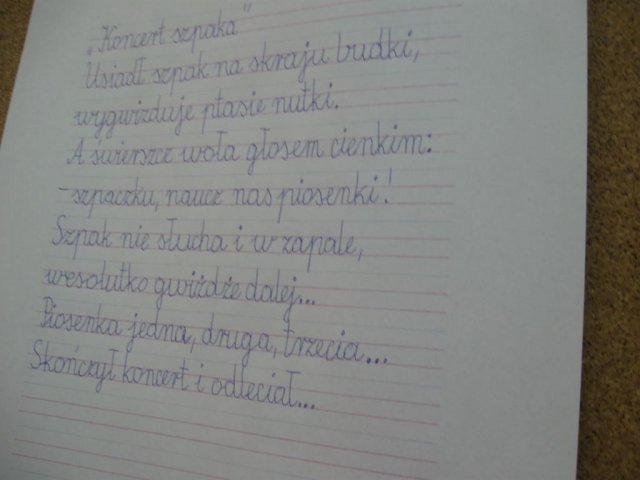 „Koncert szpaka"
Usiadł szpak na skraju budki,
wygwizduje ptasie nutki.
A świerszcz woła głosem cienkim:
- szpaczku, naucz nas piosenki!
Szpak nie słucha i w zapale,
wesolutko gwiżdże dalej...
Piosenka jedna, druga, trzecia...
Skończył koncert i odleciał...